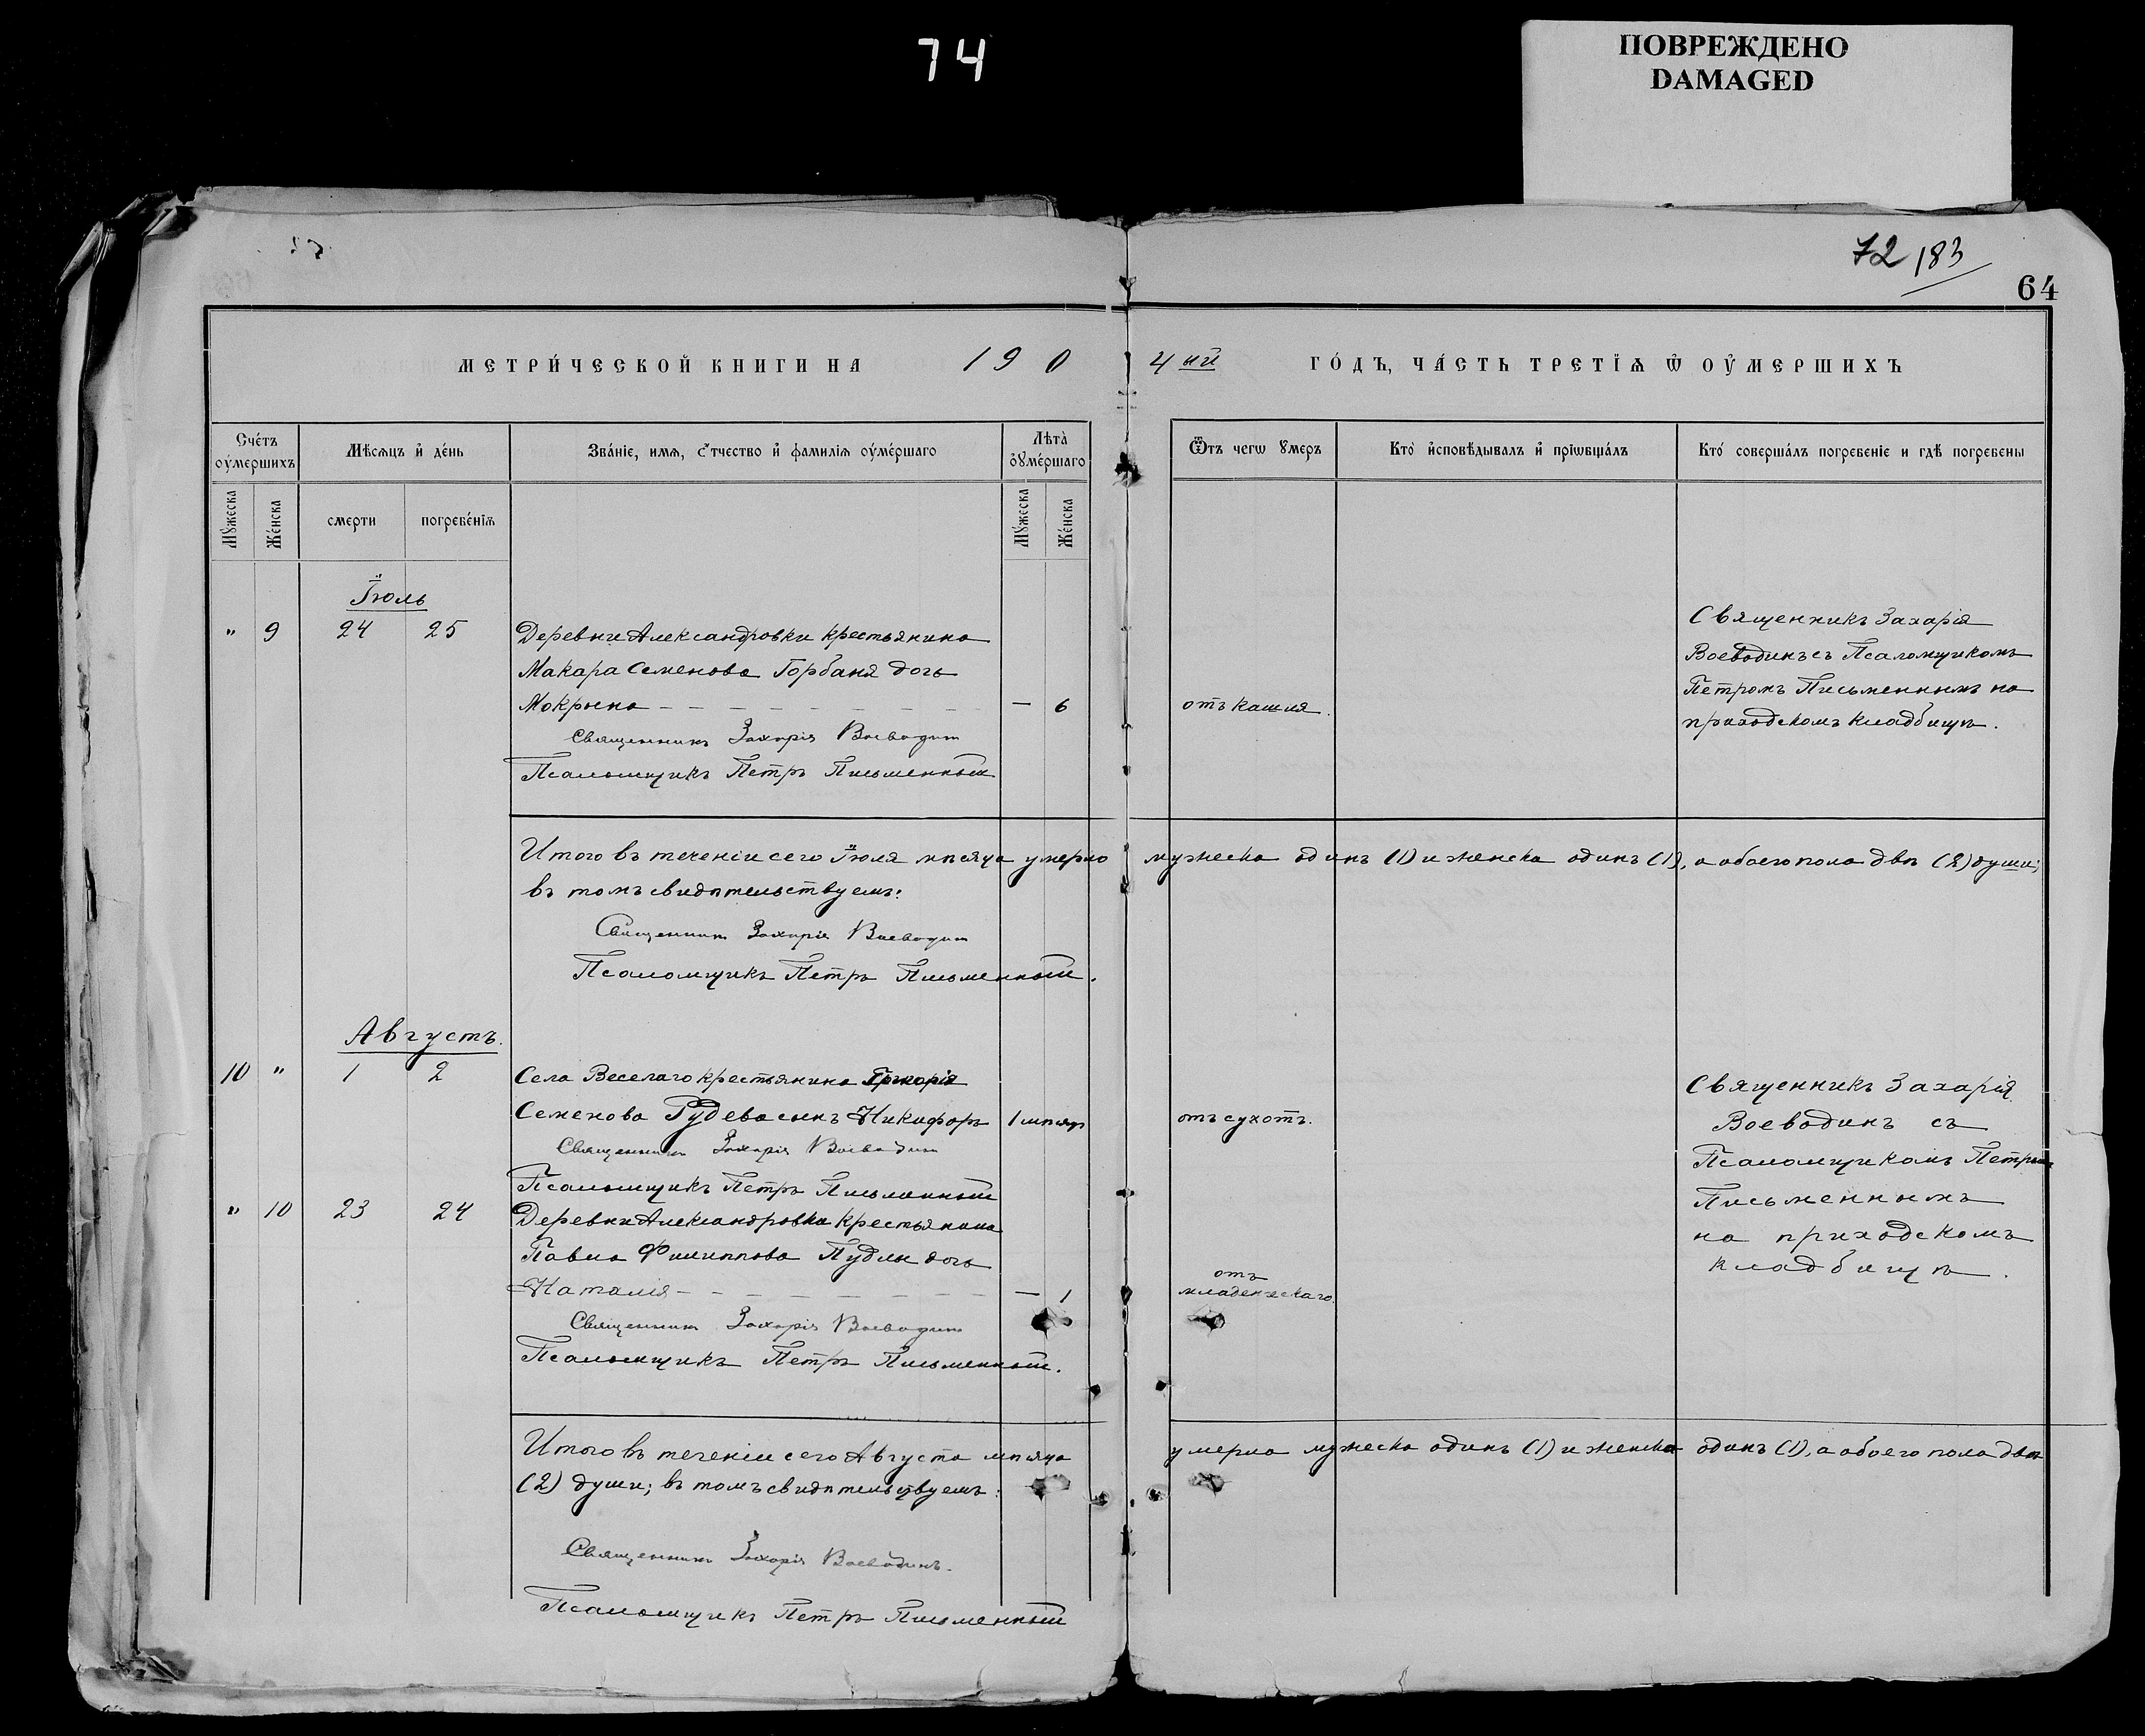 74
ПОВРЕЖДЕНО
DAMAGED
72 183
64
МЕТРИ́ЧЕСКОЙ КНИГИ НА 190 4 ый ГО́ДЪ, ЧА́СТЬ ТРЕТІѦ Ѡ ОУ҆МЕРШИХЪ
Сче́тъ оу҆ме́ршихъ
Мѣ́сѧцъ и҆ де́нь
Зва́нїе, имѧ, о҆́тчество и҆ фамилїѧ оу҆ме́ршаго
Лѣта̀ оу҆ме́ршаго
Ѿтъ чегѡ ᲂумеръ
Кто̀ и҆сповѣ́дывалъ и҆ прїѡбща́лъ
Кто́ соверша́лъ погребенїе и гдѣ̀ погребены
Мꙋ́жеска
Же́нска
смерти
погребе́нїѧ
Мꙋ́жеска
Же́нска
Іюль
" 9 24 25 Деревни Александровки крестьянина
Макара Семенова Горбаня дочь
Мокрына — 6 отъ кашля.
Священникъ Захарія Воеводинъ
Псаломщикъ Петръ Письменный
Священникъ Захарія
Воеводинъ съ Псаломщикомъ
Петромъ Письменнымъ на
приходскомъ кладбищѣ.
Итого въ теченіи сего Іюля мѣсяца умерло мужеска одинъ (1) и женска одинъ (1), а обоего пола двѣ (2) души;
въ томъ свидѣтельствуемъ:
Священникъ Захарія Воеводинъ
Псаломщикъ Петръ Письменный.
Августъ.
10 " 1 2 Села Веселаго крестьянина Григорія
Семенова Рудева сынъ Никифоръ 1 мѣсяц отъ сухотъ.
Священникъ Захарія Воеводинъ
Псаломщикъ Петръ Письменный
" 10 23 24 Деревни Александровки крестьянина
Павла Филиппова Пудлы дочь
Наталія — 1 отъ младенческаго.
Священникъ Захарія Воеводинъ
Псаломщикъ Петръ Письменный.
Священникъ Захарія
Воеводинъ съ
Псаломщикомъ Петромъ
Письменнымъ
на приходскомъ
кладбищѣ.
Итого въ теченіи сего Августа мѣсяца умерло мужеска одинъ (1) и женска одинъ (1), а обоего пола двѣ
(2) души; въ томъ свидѣтельствуемъ:
Священникъ Захарія Воеводинъ.
Псаломщикъ Петръ Письменный